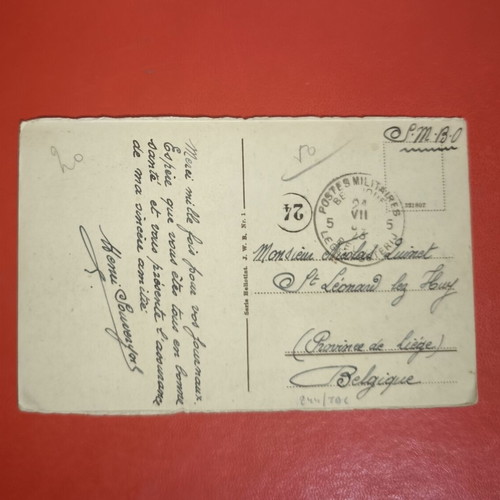 Merci mille fois pour vos journaux.
Espère que vous êtes tous en bonne
santé et vous présente l'assurance
de ma sincère amitié
Henri
Serie Ballotist. J. W. B. Nr. 1.
20
50
S.M.B.O
POSTES MILITAIRES
5 VII 5
24
Monsieur Nicolas Quinet
St Léonard lez Huy
(Province de Liège)
Belgique